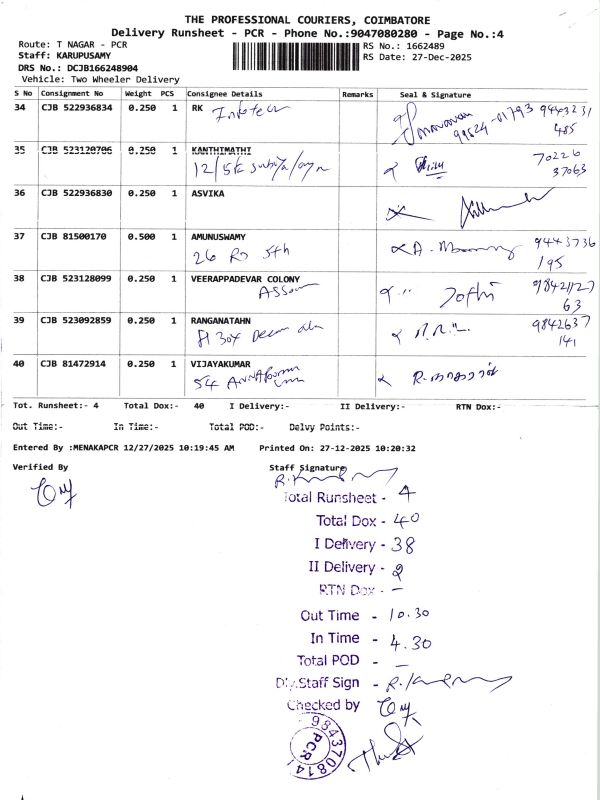 THE PROFESSIONAL COURIERS, COIMBATORE
Delivery Runsheet - PCR - Phone No.:9047080280 - Page No.:4
Route: T NAGAR - PCR
RS No.: 1662489
Staff: KARUPUSAMY
RS Date: 27-Dec-2025
DRS No.: DCJB166248904
Vehicle: Two Wheeler Delivery
S No Consignment No Weight PCS Consignee Details Remarks Seal & Signature
34 CJB 522936834 0.250 1 RK
Infotech
99624-01793 9443231
485
35 CJB 523120706 0.250 1 KANTHIMATHI
70226
37063
36 CJB 522936830 0.250 1 ASVIKA
37 CJB 81500170 0.500 1 AMUNUSWAMY
26 RD 5th
9443736
195
38 CJB 523128099 0.250 1 VEERAPPADEVAR COLONY
Jothi
63
39 CJB 523092859 0.250 1 RANGANATAHN
9842637
141
40 CJB 81472914 0.250 1 VIJAYAKUMAR
54
Tot. Runsheet:- 4 Total Dox:- 40 I Delivery:- II Delivery:- RTN Dox:-
Out Time:- In Time:- Total POD:- Delvy Points:-
Entered By :MENAKAPCR 12/27/2025 10:19:45 AM Printed On: 27-12-2025 10:20:32
Verified By Staff Signature
Total Runsheet - 4
Total Dox - 40
I Delivery - 38
II Delivery - 2
RTN Dox - —
Out Time - 10.30
In Time - 4.30
Total POD - —
Dly.Staff Sign -
Checked by
984370814
PCR